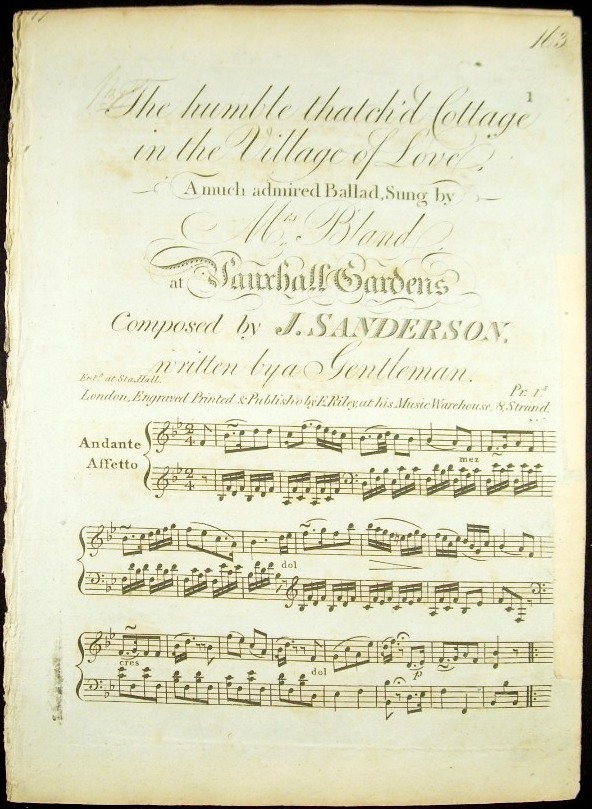 163
1
The humble thatch'd Cottage
in the Village of Love,
A much admired Ballad, Sung by
Mrs Bland
at Vauxhall Gardens
Composed by J. SANDERSON,
written by a Gentleman.
Entd at Sta. Hall. Pr. 1s
London, Engraved Printed & Publish'd by E. Riley, at his Music Warehouse, 8, Strand,
Andante
Affetto
2
4
2
4
mez
dol
cres
dol
p